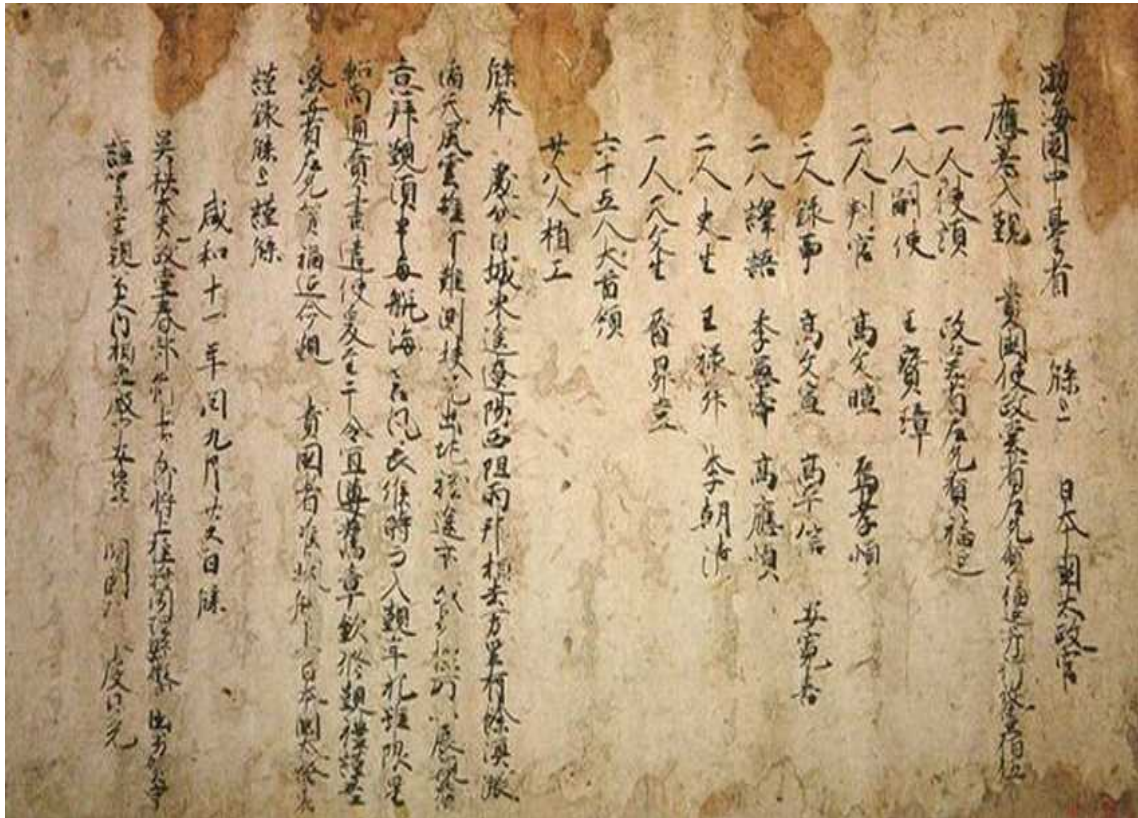 渤海國中臺省 牒上 日本國太政官
應差入覲 貴國使政堂省左允賀福延并行從壹佰伍人
一人使頭 政堂省左允賀福延
一人嗣使 王寶璋
二人判官 高文暄 烏孝慎
三人錄事 高文宣 高平信 安寬喜
二人譯語 李憲壽 高應順
二人史生 王祿昇 李朝清
一人天文生 晋昇堂
六十五人大首領
廿八人梢工
牒奉 處分日域東遙遼陽西阻兩邦相去萬里有餘溟漲
滔天風雲雖可難測扶光出地程途亦或易標所以展親舊
意拜覲須申每航海占風長候時而入覲年紀雖限星
船尚通賫書遣使爰至于今宜遵舊章欽修覲禮謹差
政堂省左允賀福延令覲 貴國者准狀牒上日本國太政官者
謹錄牒上謹牒
咸和十一年閏九月廿五日牒
吳秩大夫政堂春部卿 將上柱將聞理縣擬開國
中臺親公大內相兼殿中安豐 開國公 虔晃